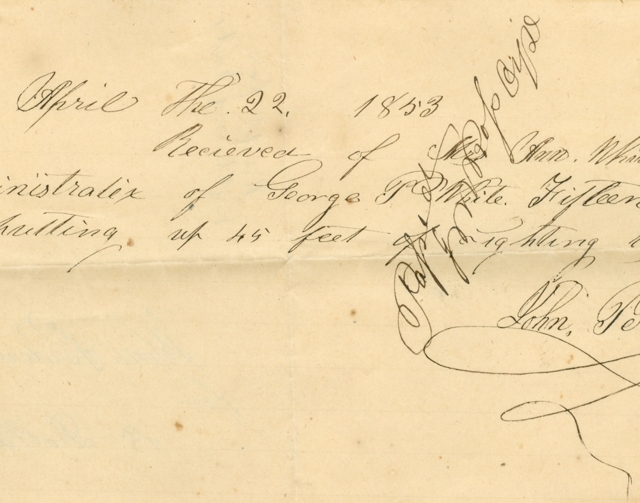 April The. 22. 1853
Recieved of Mrs Ann. Whi
inistratix of George P White. Fifteen
putting up 45 feet of Lighting
John. Pe